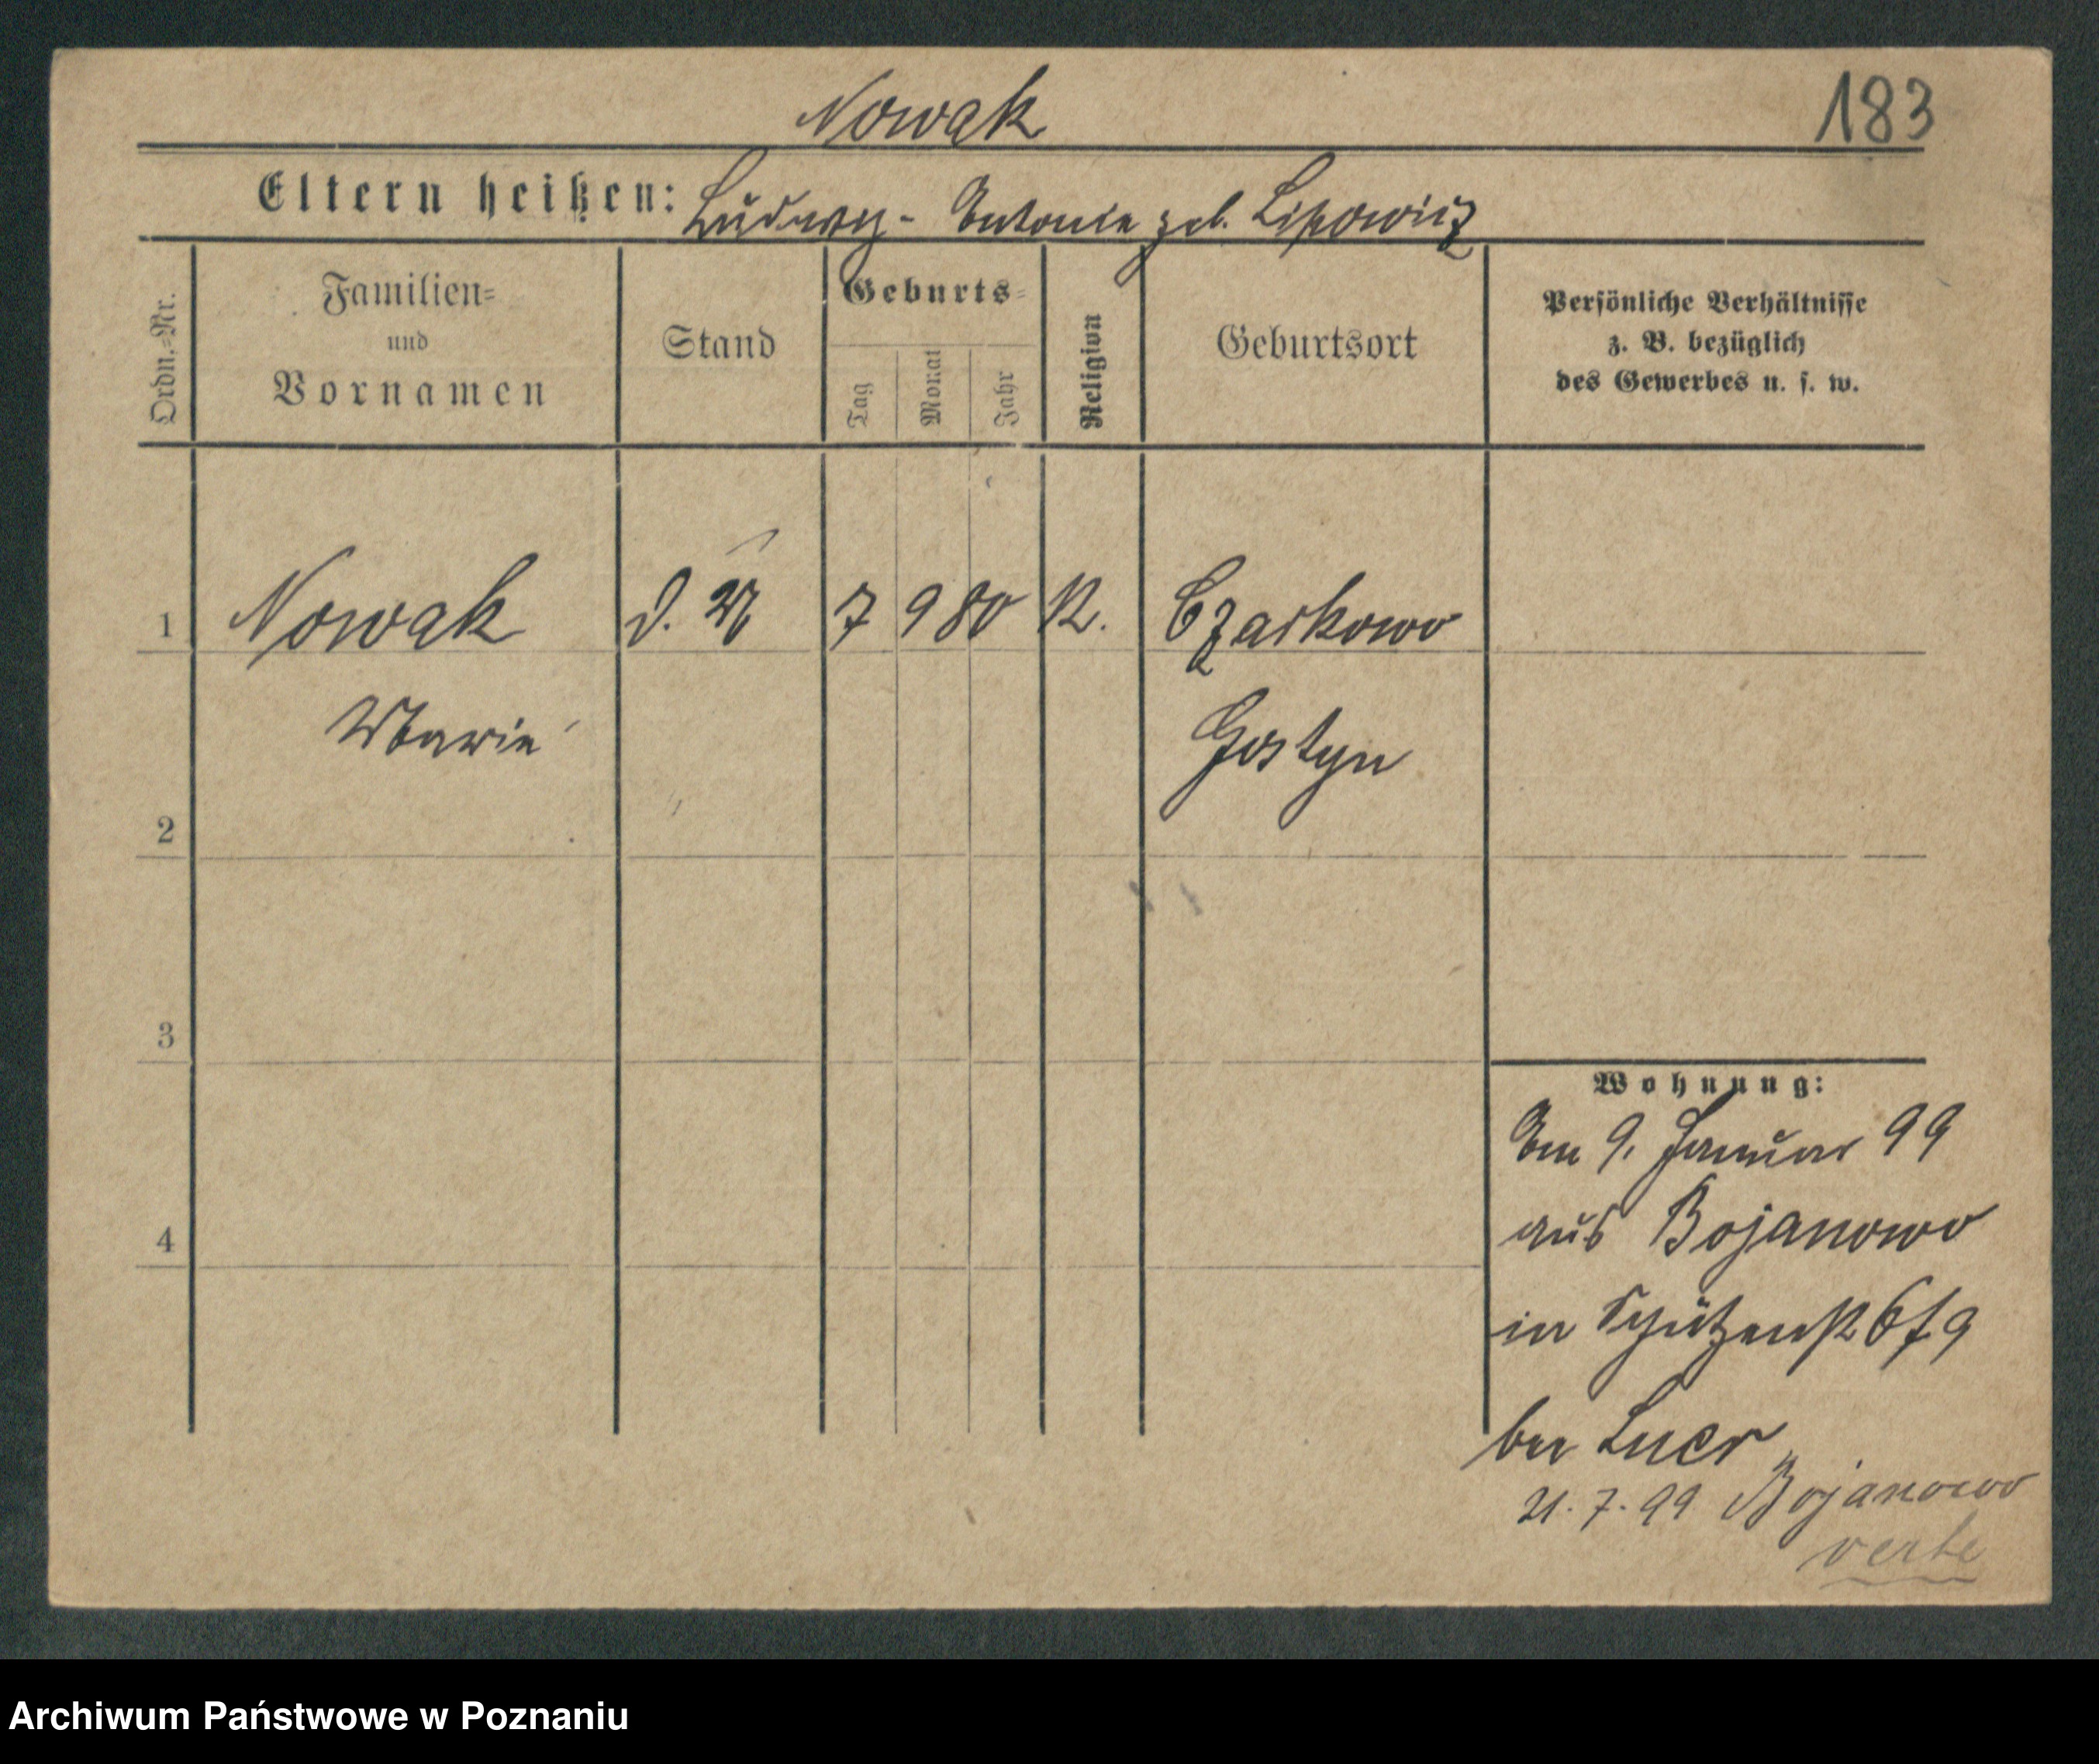 Nowak
183
Eltern heißen: Ludwig - Antonie geb. Lipowicz
Ordn.=Nr.
Familien=
und
Vornamen
Stand
Geburts=
Tag
Monat
Jahr
Religion
Geburtsort
Persönliche Verhältnisse
z. B. bezüglich
des Gewerbes u. s. w.
1 Nowak D. M 7 9 80 K. Czarkowo
Marie Gostyn
2
3
4
Wohnung:
Am 9. Januar 99
aus Bojanowo
in Schützenst 6 f 9
bei
21. 7. 99 Bojanowo
verte
Archiwum Państwowe w Poznaniu